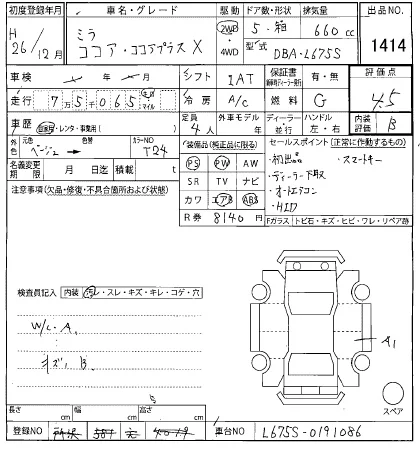 初度登録年月 車名・グレード 駆動 ドア数・形状 排気量 出品NO.
H 26/12月 ミラ ココア・ココアプラス X 2WD ・ 4WD 5・箱 660cc 1414
型式 DBA-L675S
車検 年 月 シフト IAT 保証書 有・無 評価点
走行 7万5千065 マイル 冷房 A/C 燃料 G 4.5
車歴 自家用・レンタ・事業用( ) 定員 4人 外車モデル 年 ディーラー 並行 ハンドル 左・右 内装評価 B
外色 元色 ベージュ 色替 カラーNO T24
装備品(純正品に限る)
セールスポイント(正常に作動するもの)
PS PW AW
・初出品 ・スマートキー
名義変更期限 月 日迄 積載 t
SR TV ナビ
・ディーラー下取
注意事項(欠品・修復・不具合箇所および状態)
カワ エアB ABS
・オートエアコン
・HID
R券 8140円
Fガラス トビ石・キズ・ヒビ・ワレ・リペア跡
検査員記入 内装 汚レ・スレ・キズ・キレ・コゲ・穴
W/L・A.
キズ B
A1
スペア
長さ cm 幅 cm 高さ cm
登録NO 581 4079 車台NO L675S-0191086